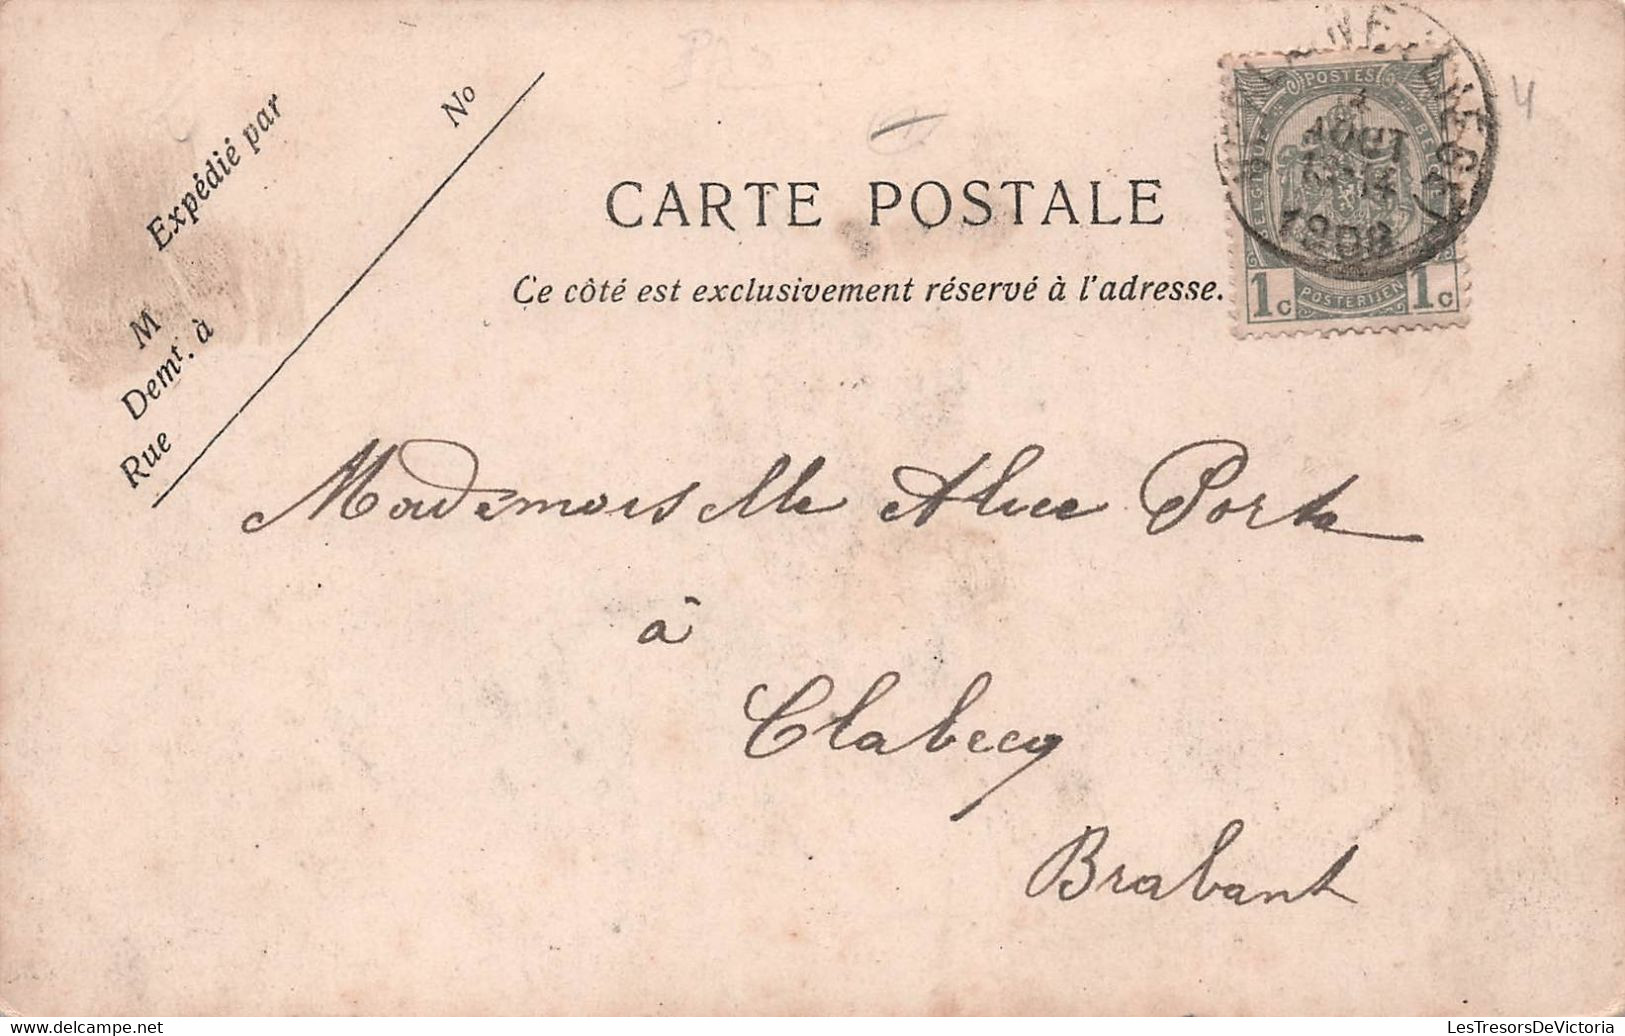 Expédié par
No
M
Demt. à
Rue
CARTE POSTALE
Ce côté est exclusivement réservé à l'adresse.
POSTES
BELGIQUE
1c POSTERIJEN 1c
AOUT
Mademoiselle Alice Porta
à
Clabecq
Brabant
4
LesTresorsDeVictoria